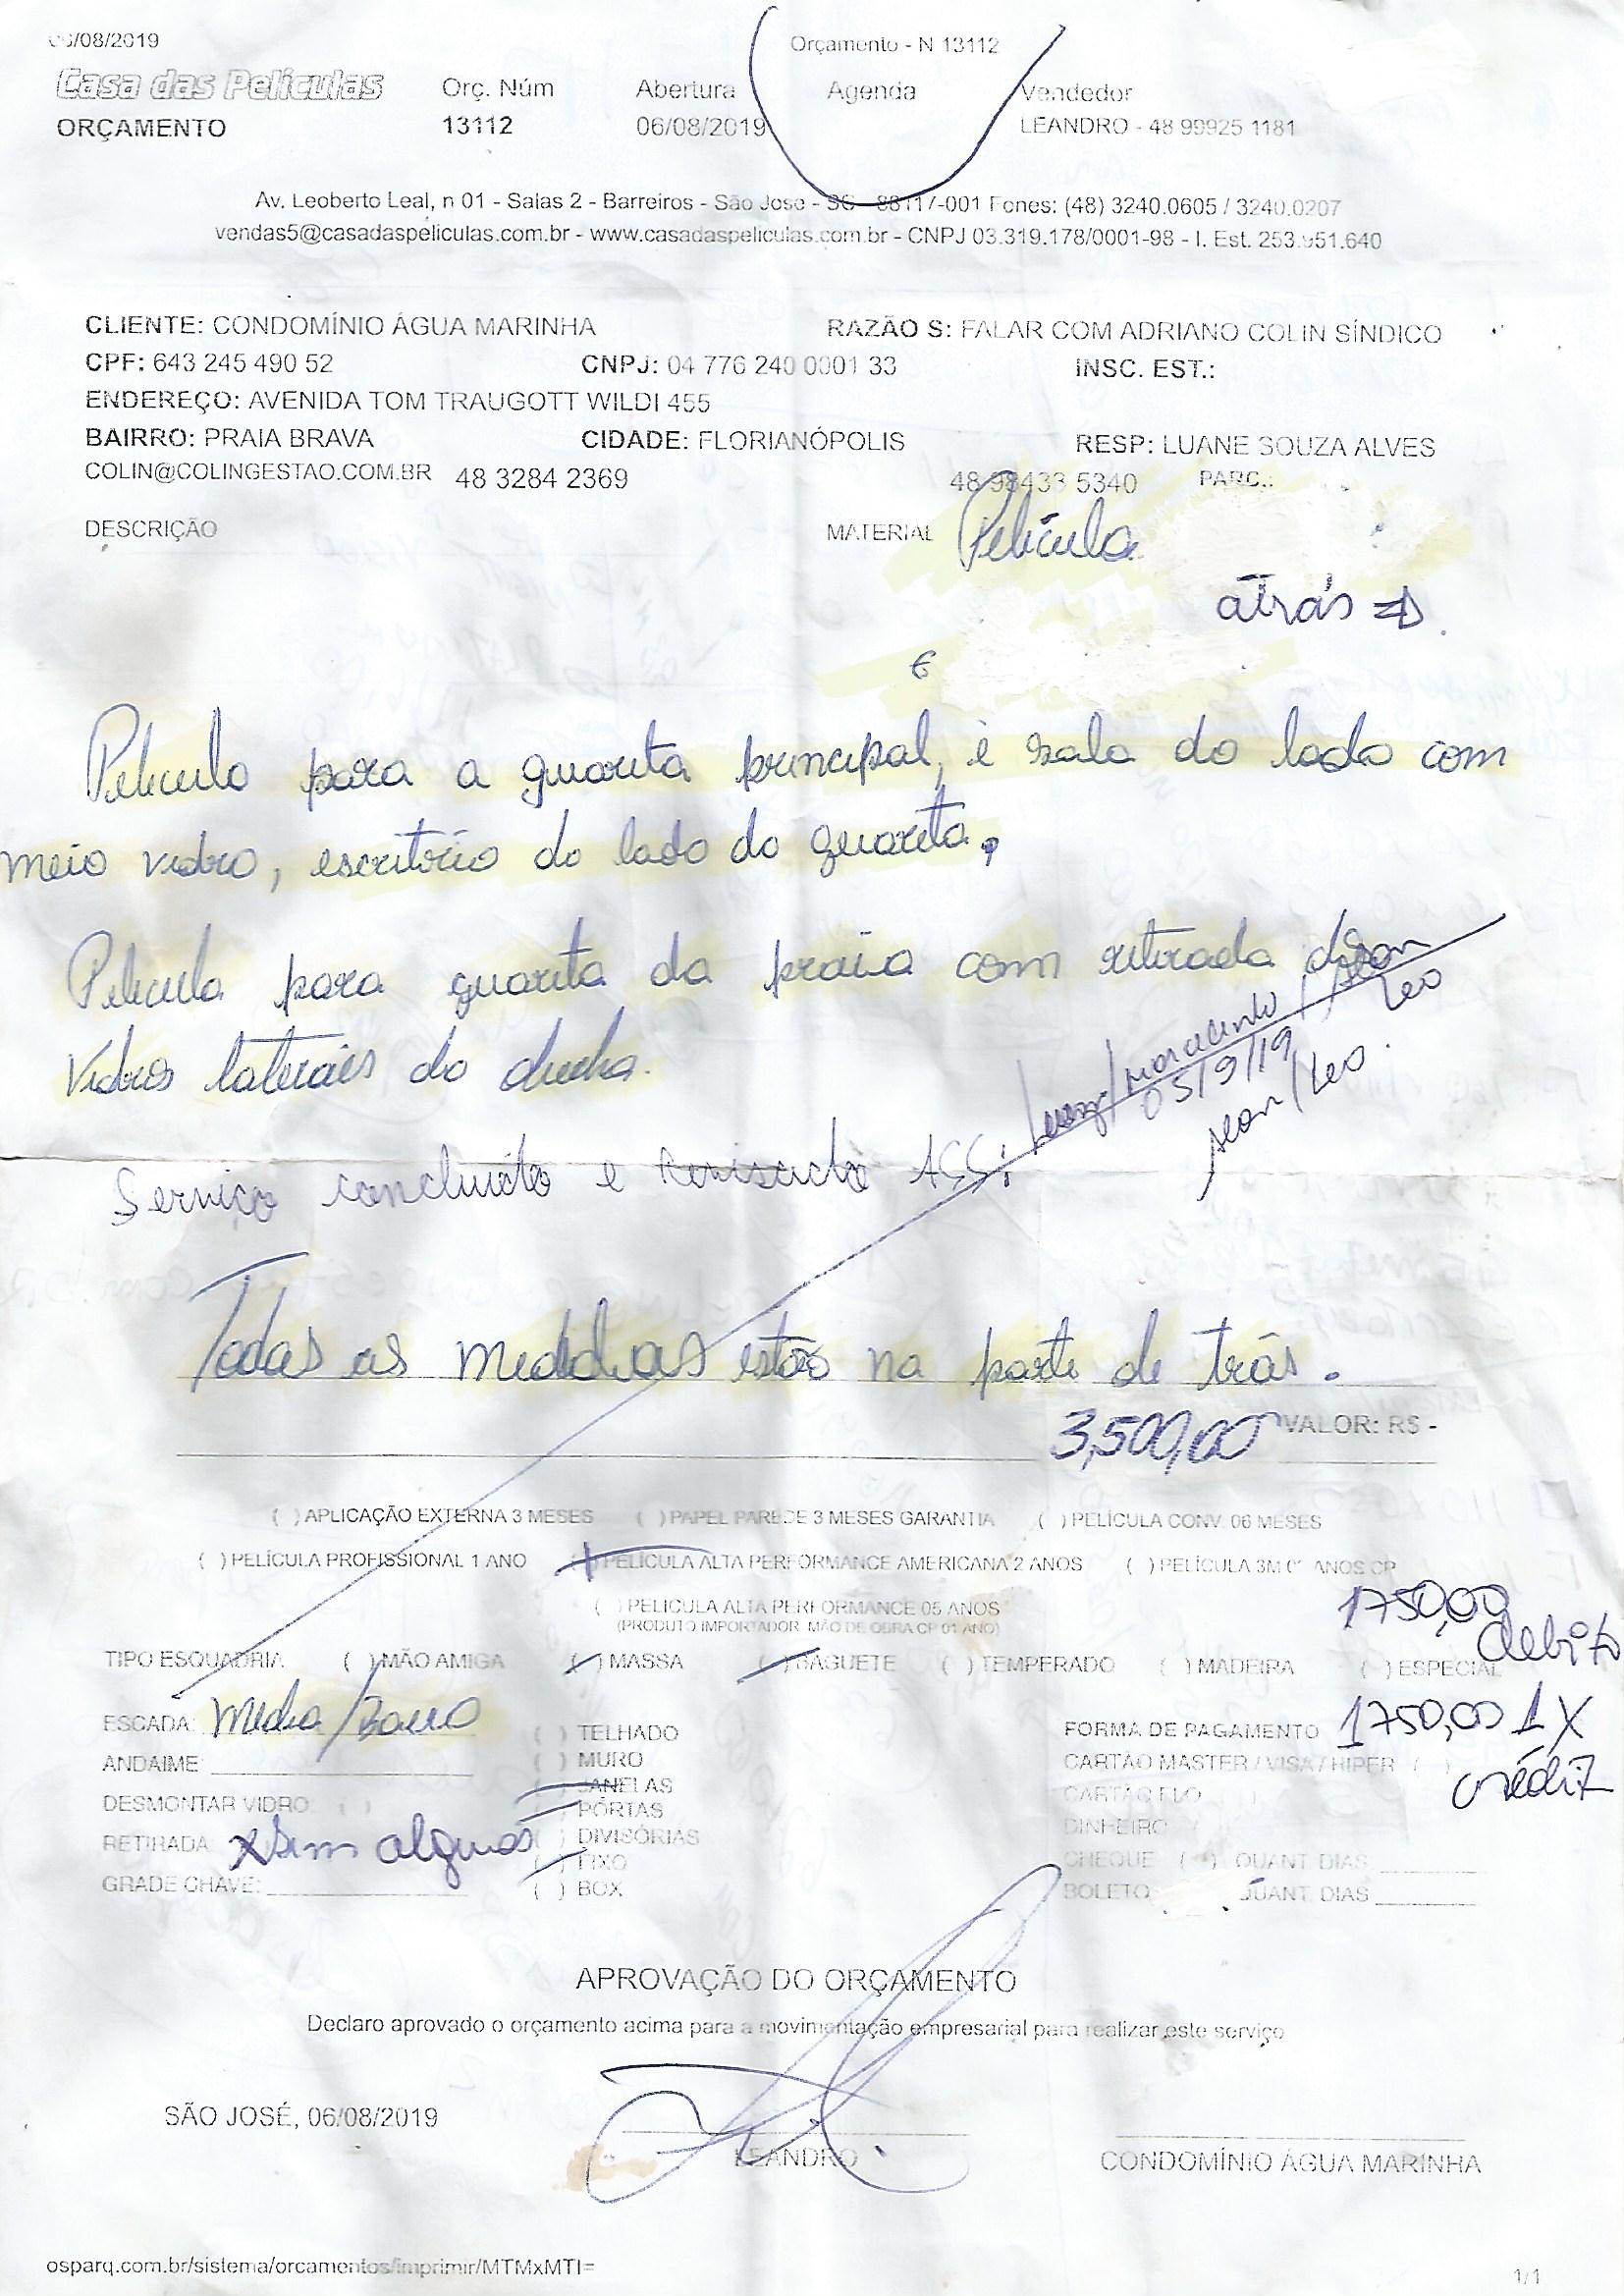 06/08/2019
Orçamento - N 13112
Casa das Películas
Orç. Núm Abertura Agenda Vendedor
ORÇAMENTO 13112 06/08/2019 LEANDRO - 48 99925 1181
Av. Leoberto Leal, n 01 - Salas 2 - Barreiros - São José - SC - 88117-001 Fones: (48) 3240.0605 / 3240.0207
vendas5@casadaspeliculas.com.br - www.casadaspeliculas.com.br - CNPJ 03.319.178/0001-98 - I. Est. 253.951.640
CLIENTE: CONDOMÍNIO ÁGUA MARINHA RAZÃO S: FALAR COM ADRIANO COLIN SÍNDICO
CPF: 643 245 490 52 CNPJ: 04 776 240 0001 33 INSC. EST.:
ENDEREÇO: AVENIDA TOM TRAUGOTT WILDI 455
BAIRRO: PRAIA BRAVA CIDADE: FLORIANÓPOLIS RESP: LUANE SOUZA ALVES
COLIN@COLINGESTAO.COM.BR 48 3284 2369 48 98433 5340 PARC.:
DESCRIÇÃO MATERIAL Película
atrás
Pelicula para a guarita principal, e sala do lado com
meio vidro, escritório do lado do guarita.
Pelicula para guarita da praia com retirada dos
Vidros laterais do ducha.
05/9/19
Jean/Leo
Serviço concluido e Revisado ASS:
Todas as medidas estão na parte de trás.
3,500,00 VALOR: R$ -
( ) APLICAÇÃO EXTERNA 3 MESES ( ) PAPEL PAREDE 3 MESES GARANTIA ( ) PELÍCULA CONV. 06 MESES
( ) PELÍCULA PROFISSIONAL 1 ANO ( ) PELÍCULA ALTA PERFORMANCE AMERICANA 2 ANOS ( ) PELÍCULA 3M ANOS CP
( ) PELICULA ALTA PERFORMANCE 05 ANOS
(PRODUTO IMPORTADOR. MÃO DE OBRA CP 01 ANO)
1750,00
debito
TIPO ESQUADRIA ( ) MÃO AMIGA ( ) MASSA ( ) BAGUETE ( ) TEMPERADO ( ) MADEIRA ( ) ESPECIAL
ESCADA: Media/
( ) TELHADO
FORMA DE PAGAMENTO 1750,00 1X
ANDAIME:
( ) MURO
CARTÃO MASTER / VISA / HIPER ( )
crédit
( ) JANELAS
DESMONTAR VIDRO: ( )
( ) PORTAS
CARTÃO ELO
RETIRADA: x Sim alguns
( ) DIVISÓRIAS
DINHEIRO
( ) FIXO
CHEQUE ( ) QUANT. DIAS:
GRADE CHAVE:
( ) BOX
BOLETO QUANT. DIAS
APROVAÇÃO DO ORÇAMENTO
Declaro aprovado o orçamento acima para a movimentação empresarial para realizar este serviço
SÃO JOSÉ, 06/08/2019
LEANDRO CONDOMÍNIO ÁGUA MARINHA
osparq.com.br/sistema/orcamentos/imprimir/MTMxMTI=
1/1